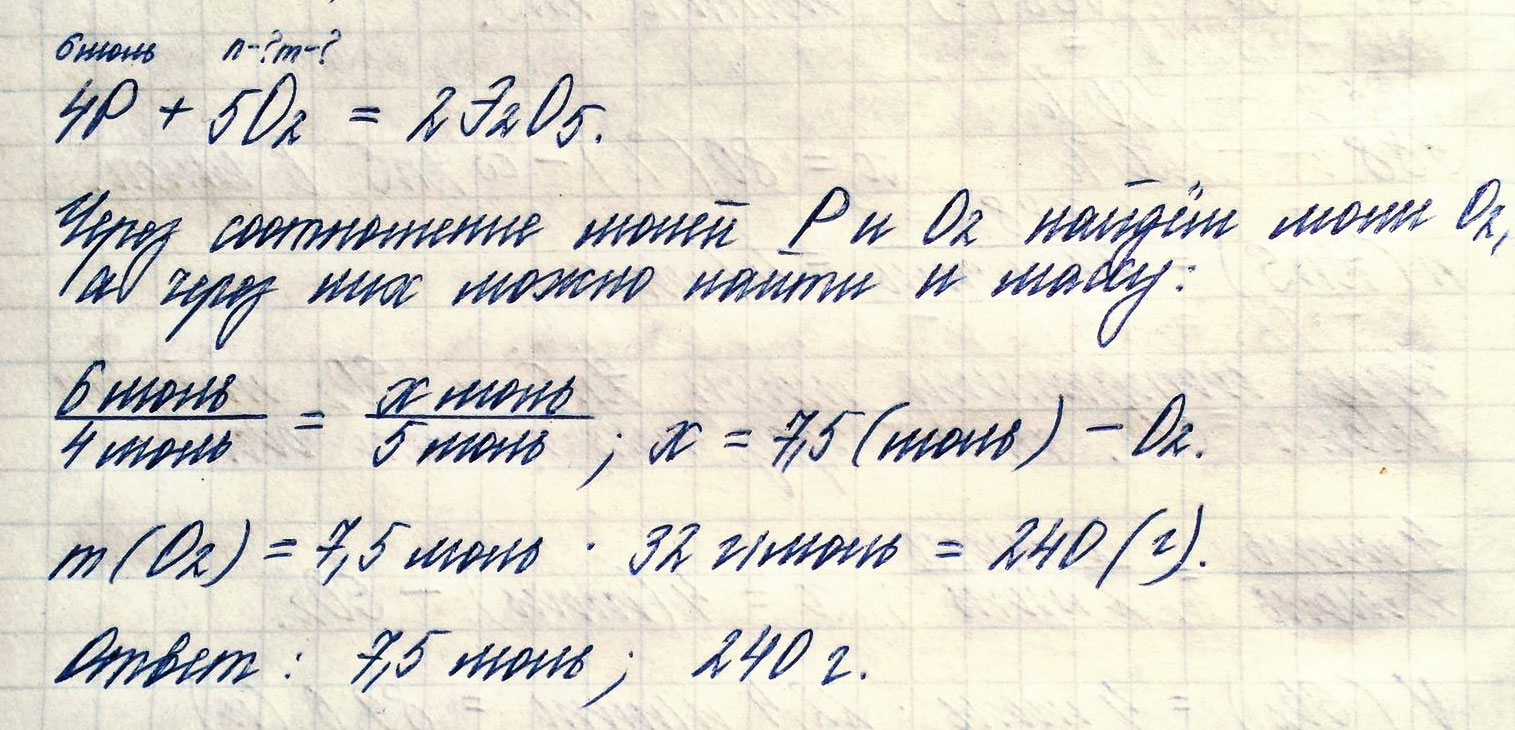 6 моль n-? m-?
4P + 5O₂ = 2Э₂O₅.
Через соотношение молей P и O₂ найдём моли O₂,
а через них можно найти и массу:
6 моль / 4 моль = x моль / 5 моль ; x = 7,5 (моль) – O₂.
m (O₂) = 7,5 моль · 32 г/моль = 240 (г).
Ответ : 7,5 моль ; 240 г.